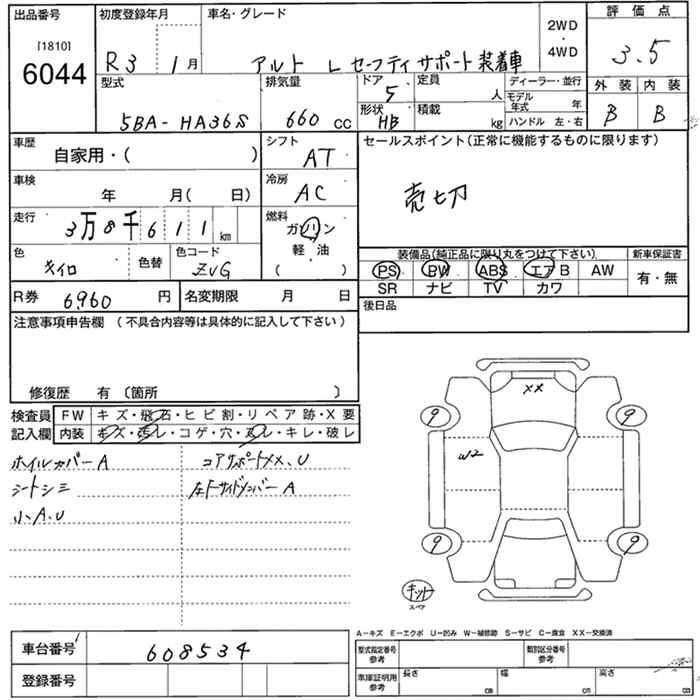 出品番号
[1810]
6044
初度登録年月
R3 1月
車名・グレード
アルト L セーフティサポート装着車
2WD
・
4WD
評価点
3.5
型式
5BA-HA36S
排気量
660 cc
ドア
5
形状
HB
定員
人
積載
kg
ディーラー・並行
モデル年式 年
ハンドル 左・右
外装 内装
B B
車歴
自家用・( )
シフト
AT
車検
年 月( 日)
冷房
AC
走行
3万8千611km
燃料
ガソリン
軽・油
( )
色
キイロ
色替
色コード
ZVG
R券 6,960 円
名変期限 月 日
セールスポイント(正常に機能するものに限ります)
売切
装備品(純正品に限り丸をつけて下さい)
PS PW ABS エアB AW
SR ナビ TV カワ
新車保証書
有・無
後日品
注意事項申告欄 (不具合内容等は具体的に記入して下さい)
修復歴 有 〔箇所 〕
検査員
記入欄
FW キズ・飛石・ヒビ割・リペア跡・X要
内装 キズ・汚レ・コゲ・穴・スレ・キレ・破レ
ホイルカバーA
シートシミ
小A.U
コアサポートXX、U
左F サイドメンバーA
XX
9
9
W2
9
9
キット
スペア
A−キズ E−エクボ U−凹み W−補修跡 S−サビ C−腐食 XX−交換済
車台番号 608534
登録番号
型式指定番号
参考
類別区分番号
参考
車庫証明用
参考
長さ cm
幅 cm
高さ cm